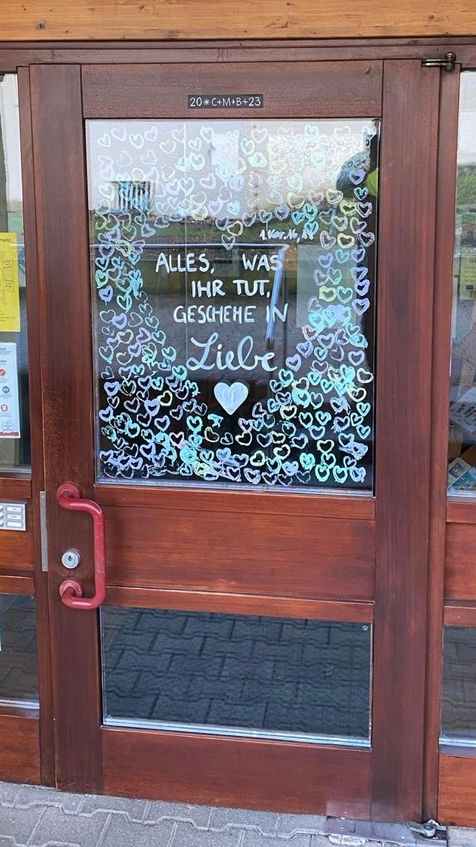 20*C+M+B+23
1. Kor. 16, 14
ALLES, WAS
IHR TUT,
GESCHEHE IN
Liebe